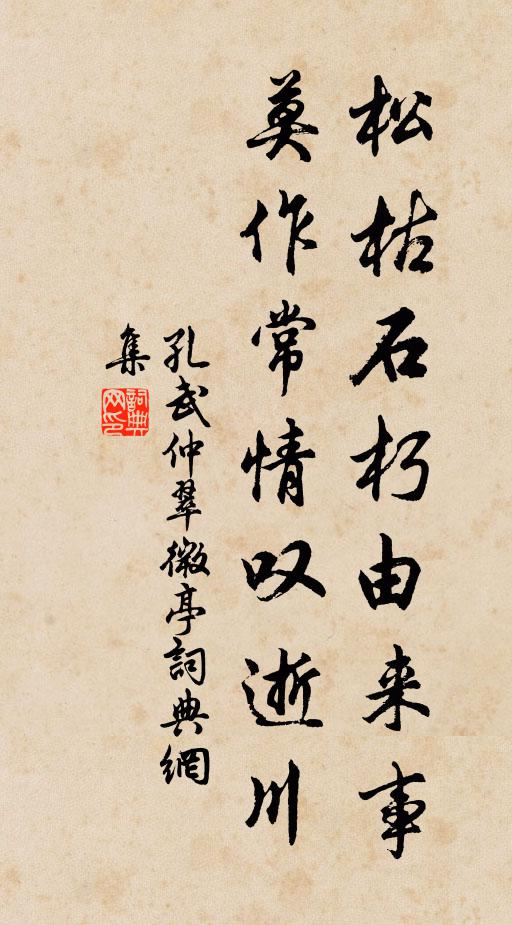 松枯石朽由来事
莫作常情叹逝川
孔武仲翠微亭詞典網
集
詞典
网印